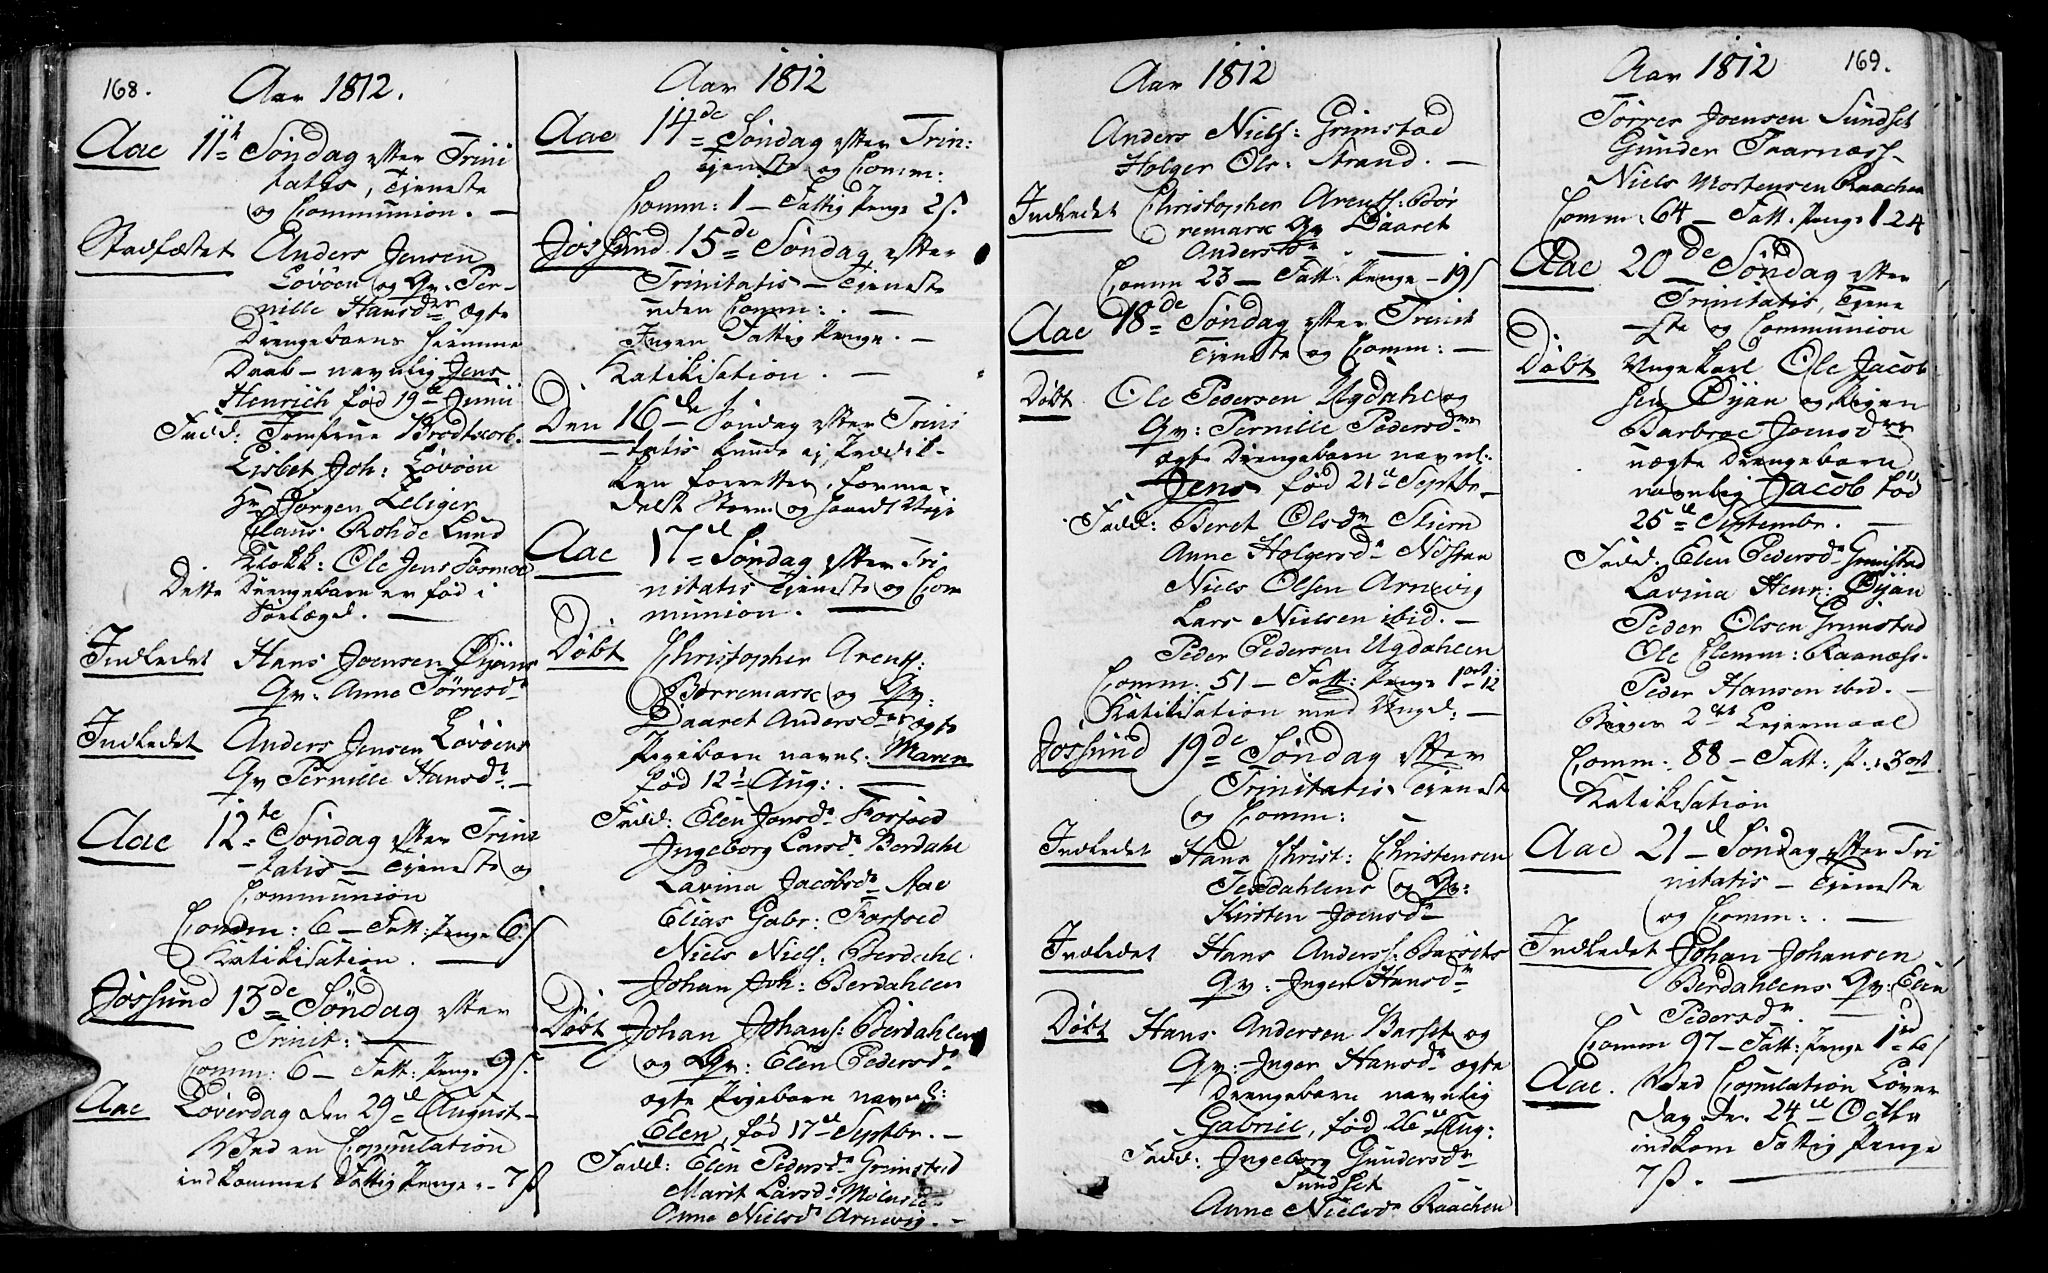 168.
Aar 1812.
Aae 11te Søndag efter Trini
tatis, Tjeneste
og Communion. —
Stadfæstet Anders Jensen
Løvøen og Qv: Per-
nille Hansdr ægte
Drengebarns hiemme
Daab - navnlig Jens
Henrich fød 19de Junii
Fadd: Jomfrue Brodtkorb.
Lisbet Joh: Løvøen
Hr Jørgen Zeliger
Claus Rohde Lund
Klokk: Ole Jens
Dette Drengebarn er fød i
Indledet Hans Joensen Øyans
Qv: Anne Tørresdr
Indledet Anders Jensen Løvøens
Qv Pernille Hansdr. —
Aae 12te Søndag efter Trini
-tatis — Tjeneste og
Communion
Comm: 6 — Fatt: Penge 6 ß
Katikisation. —
Jøssund 13de Søndag efter
Trinit: —
Comm: 6 — Fatt: Penge 9 ß.
Aae Løverdag den 29de August-
Ved en Copulation
indkommet Fattig Penge - 7 ß
Aar 1812
Aae 14de Søndag efter Trin:
Tjeneste og Comm:
Comm: 1 — Fattig Penge 2 ß.
Jøssund 15de Søndag efter
Trinitatis — Tjeneste
uden Comm: . —
Ingen Fattig Penge. —
Katikisation. —
Den 16de Søndag efter Trini
-tatis kunde ej Prædik-
ken forrettes, forme-
delst Storm og haardt Vejr
Aae 17de Søndag efter Tri
nitatis Tjeneste og Com
munion. —
Døbt Christopher Arents:
Børremark og Qv:
Daaret Andersdr ægte
Pigebarn navnl: Maren
fød 12te Aug: . —
Fadd: Elen Jonsdr Forfoed
Ingeborg Larsdr Berdahl
Lavina Jacobsdr Aae
Elias Gabr: Forfoed
Niels Niels: Berdahl.
Johan Joh: Berdahlen
Døbt Johan Johans: Berdahlen
og Qv: Elen Pedersdr
ægte Pigebarn navnl:
Elen, fød 17de Septbr. —
Fadd: Elen Pedersdr Grimstad
Marit Larsdr
Anne Nielsdr Arnevig. —
Aar 1812
Anders Niels: Grimstad
Holger Ols: Strand. —
Indledet Christopher Arents: Bør
remark Qv Daaret
Andersdr. —
Comm 23 — Fatt: Penge — 19 ß
Aae 18de Søndag efter Trinit
Tjeneste og Comm: —
Døbt Ole Pedersen Ugdahl og
Qv: Pernille Pedersdr
ægte Drengebarn navnl:
Jens fød 21de Septbr —
Fadd: Beret Olsdr Stiern
Anne Holgersdr Nøstan
Niels Olsen Arnevig
Lars Nielsen ibid. —
Peder Pedersen Ugdahlen
Comm: 51 — Fatt: Penge 1 ort 12
Katikisation med Ungd: —
Jøssund 19de Søndag efter
Trinitatis Tjeneste
og Comm: —
Indledet Hans Christ: Christensen
Texdahlens og Qv:
Kirsten Joensdr
Indledet Hans Anders: Barsets
Qv: Inger Hansdr
Døbt Hans Andersen Barset og
Qv: Inger Hansdr ægte
Drengebarn navnlig
Gabriel, fød 26de Aug:
Fadd: Ingeborg Gundersdr
Sundset
Anne Nielsdr Raachen
Aar 1812
169.
Tørres Joensen Sundset
Gunder Taarnæss-
Niels Mortensen Raachen
Comm: 64 — Fatt: Penge 1 - 24
Aae 20de Søndag efter
Trinitatis, Tjene
-ste og Communion
Døbt Ungekarl Ole Jacob
sen Øyan og Pigen
Barbroe Joensdr
uægte Drengebarn
navnlig Jacob fød
25de Septembr. —
Fadd: Elen Pedersdr Grimstad
Lavina Henr: Øyan
Peder Olsen Grimstad
Ole Clemm: Raanæss-
Peder Hansen ibid. —
2det Lejermaal
Comm: 88 — Fatt: P. 3 ort.
Katikisation
Aae 21de Søndag efter Tri
nitatis — Tjeneste
og Comm: . —
Indledet Johan Johansen
Berdahlens Qv: Elen
Pedersdr. —
Comm 97 — Fatt: Penge
Aae. Ved Copulation Løver
dag den 24de Octbr
indkom Fattig Penge
7 ß. —